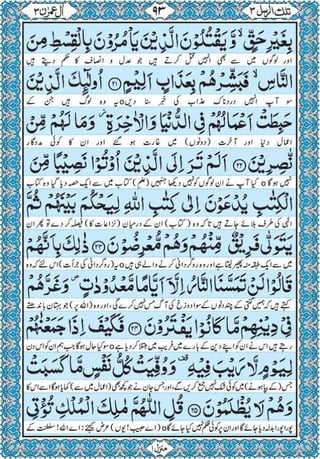 تلك الرسل ٣ ٩٣ آل عمرٰن ٣
بِغَيْرِ حَقٍّ ۙ وَّ يَقْتُلُوْنَ الَّذِيْنَ يَاْمُرُوْنَ بِالْقِسْطِ مِنَ
اور لوگوں میں سے بھی انہیں قتل کرتے ہیں جو عدل و انصاف کا حکم دیتے ہیں
النَّاسِ ۙ فَبَشِّرْهُمْ بِعَذَابٍ اَلِيْمٍ ﴿۲۱﴾ اُولٰٓئِكَ الَّذِيْنَ
سو آپ انہیں دردناک عذاب کی خبر سنا دیں o یہ وہ لوگ ہیں جن کے
حَبِطَتْ اَعْمَالُهُمْ فِي الدُّنْيَا وَ الْاٰخِرَةِ ۫ وَ مَا لَهُمْ مِّنْ
اعمال دنیا اور آخرت (دونوں) میں غارت ہو گئے اور ان کا کوئی مددگار
نّٰصِرِيْنَ ﴿۲۲﴾ اَلَمْ تَرَ اِلَى الَّذِيْنَ اُوْتُوْا نَصِيْبًا مِّنَ
نہیں ہوگا o کیا آپ نے ان لوگوں کو نہیں دیکھا جنہیں (علمِ) کتاب میں سے ایک حصہ دیا گیا وہ کتابِ
الْكِتٰبِ يُدْعَوْنَ اِلٰى كِتٰبِ اللّٰهِ لِيَحْكُمَ بَيْنَهُمْ ثُمَّ
الٰہی کی طرف بلائے جاتے ہیں تاکہ وہ (کتاب) ان کے درمیان (نزاعات کا) فیصلہ کر دے تو پھر ان
يَتَوَلّٰى فَرِيْقٌ مِّنْهُمْ وَ هُمْ مُّعْرِضُوْنَ ﴿۲۳﴾ ذٰلِكَ بِاَنَّهُمْ
میں سے ایک طبقہ منہ پھیر لیتا ہے اور وہ روگردانی کرنے والے ہی ہیں o یہ (روگردانی کی جرأت) اس لئے کہ وہ
قَالُوْا لَنْ تَمَسَّنَا النَّارُ اِلَّاۤ اَيَّامًا مَّعْدُوْدٰتٍ ۪ وَ غَرَّهُمْ
کہتے ہیں کہ ہمیں گنتی کے چند دنوں کے سوا دوزخ کی آگ مس نہیں کرے گی، اور وہ (اللہ پر) جو بہتان باندھتے
فِيْ دِيْنِهِمْ مَّا كَانُوْا يَفْتَرُوْنَ ﴿۲۴﴾ فَكَيْفَ اِذَا جَمَعْنٰهُمْ
رہتے ہیں اس نے ان کو اپنے دین کے بارے میں فریب میں مبتلا کر دیا ہے o سو کیا حال ہوگا جب ہم ان کو اس دن
لِيَوْمٍ لَّا رَيْبَ فِيْهِ ۫ وَ وُفِّيَتْ كُلُّ نَفْسٍ مَّا كَسَبَتْ
جس (کے بپا ہونے) میں کوئی شک نہیں جمع کریں گے، اور جس جان نے جو کچھ بھی (اعمال میں سے) کمایا ہوگا اسے اس کا
وَ هُمْ لَا يُظْلَمُوْنَ ﴿۲۵﴾ قُلِ اللّٰهُمَّ مٰلِكَ الْمُلْكِ تُؤْتِي
پورا پورا بدلہ دیا جائے گا اور ان پر کوئی ظلم نہیں کیا جائے گا o (اے حبیب! یوں) عرض کیجئے: اے اللہ! سلطنت کے
منزل